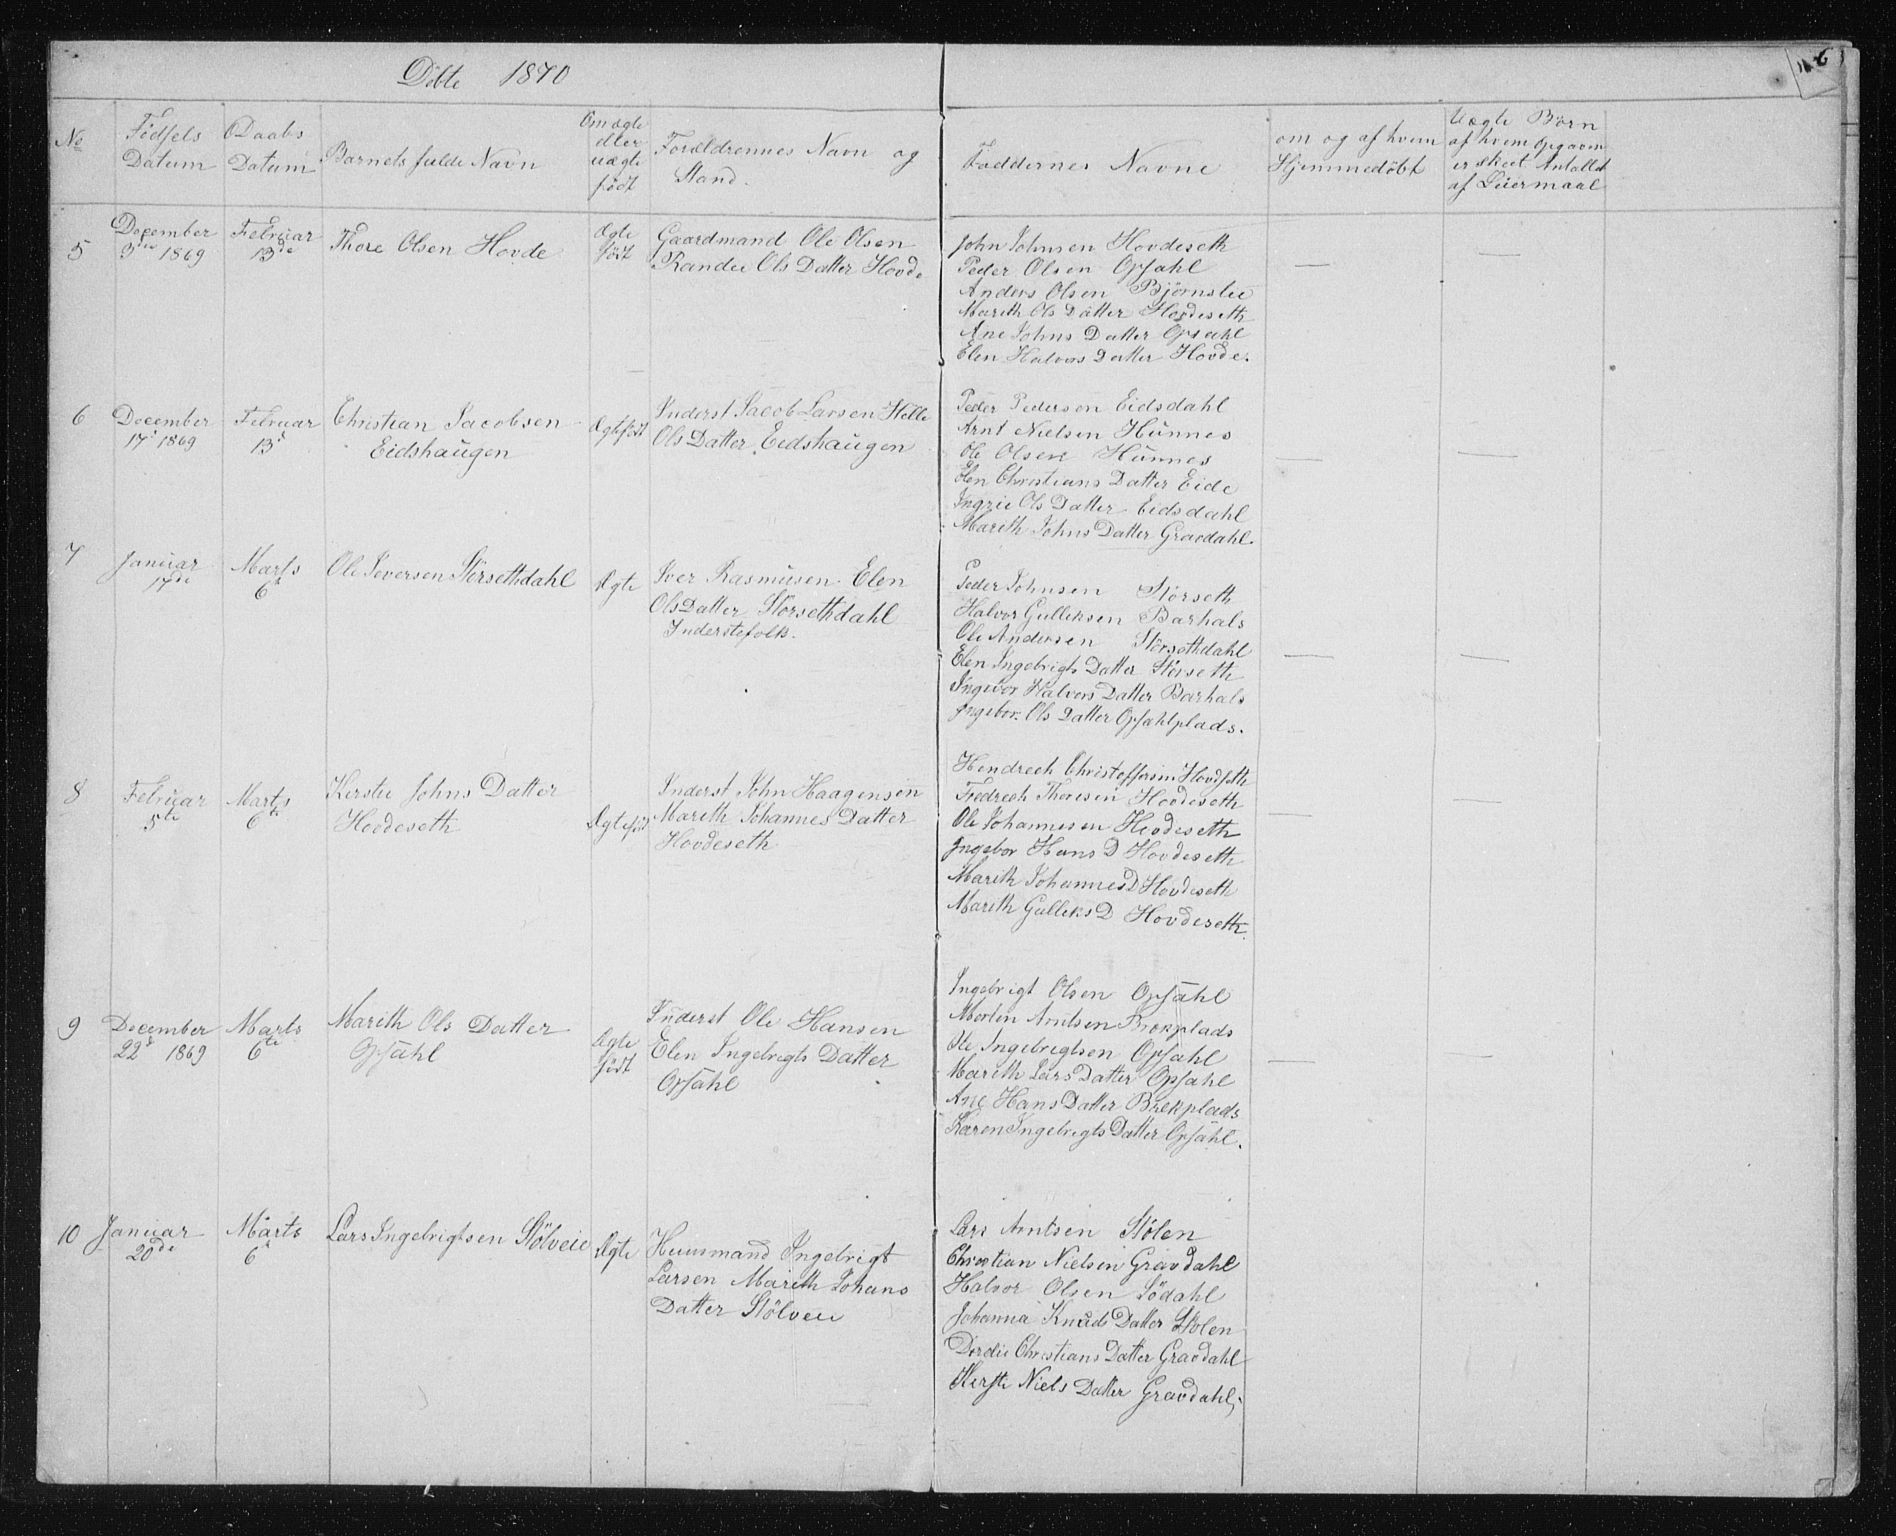 Döbte 1870
6
No
Födsels Datum
Daabs Datum
Barnets fulde Navn
Om ægte eller uægte född
Forældrennes Navn og Stand.
Faddernes Navne
om og af hvem Hjemmedöbt
Uægte Börn af hvem Opgaven er skeet Antallet af Leiermaal
5
December 3die 1869
Februar 13de
Thore Olsen Hovde
Ægte födt
Gaardmand Ole Olsen
Randie Ols Datter Hovde
John Johnsen Hovdeseth
Peder Olsen Opsahl
Anders Olsen Björnslie
Marith Ols Datter Hovdeseth
Ane Johns Datter Opsahl
Elen Halvors Datter Hovde.
— —
6
December 17de 1869
Februar 13de
Christian Jacobsen
Eidshaugen
Ægtefödt
Inderst Jacob Larsen Helle
Ols Datter Eidshaugen
Peder Pedersen Eidsdahl
Arnt Nielsen Hunnes
Ole Olsen Hunnes
Elen Christians Datter Eide
Ingrie Ols Datter Eidsdahl
Marith Johns Datter Gravdahl.
— —
7
Januar 17de
Marts 6te
Ole Iversen Störsethdahl
Ægte
Iver Rasmusen Elen
Ols Datter Störsethdahl
Inderstefolk.
Peder Johnsen Störseth
Halvor Gulliksen Barhals
Ole Andersen Störsethdahl
Elen Ingebrigts Datter Störseth
Ingebor Halvors Datter Barhals
Ingebor Ols Datter Opsahlplads.
— —
8
Februar 5te
Marts 6te
Kerstie Johns Datter
Hovdeseth
Ægtefödt
Inderst John Haagensen
Marith Johannes Datter
Hovdeseth
Hendrech Christoffersen Hovdseth
Fredrech Thoresen Hovdeseth
Ole Johannesen Hovdeseth
Ingebor Hans D Hovdeseth
Marith Johannes D Hovdeseth
Marith Gulleks D Hovdeseth.
— —
9
December 22de 1869
Marts 6te
Marith Ols Datter
Opsahl
Ægte födt
Inderst Ole Hansen
Elen Ingebrigts Datter
Opsahl
Ingebrigt Olsen Opsahl
Morten Arntsen Brekplads
Ole Ingebrigtsen Opsahl
Marith Lars Datter Opsahl
Ane Hans Datter Brekplads
Karen Ingebrigts Datter Opsahl.
— —
10
Januar 20de
Marts 6te
Lars Ingebrigtsen Stölveie
Ægte
Huusmand Ingebrigt
Larsen Marith Johans
Datter Stölveie
Lars Arntsen Stölen
Christian Nielsen Gravdahl
Halvor Olsen Södahl
Johanna Knuds Datter Stölen
Dordie Christians Datter Gravdahl
Kersti Niels Datter Gravdahl.